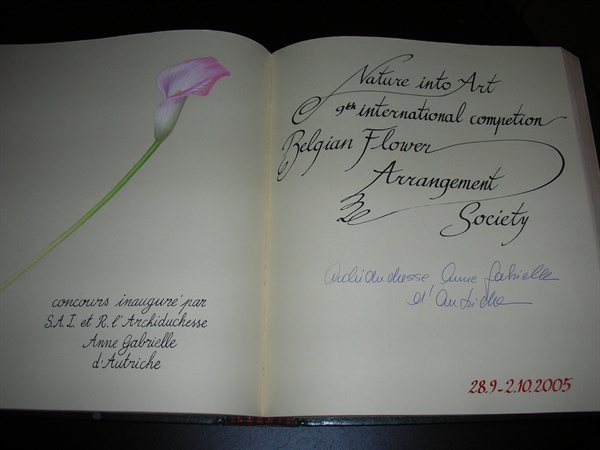 concours inauguré par
S.A.I. et R. l'Archiduchesse
Anne Gabrielle
d'Autriche
Nature into Art
9th international competion
Belgian Flower
Arrangement
Society
Archiduchesse Anne Gabrielle
d'Autriche
28.9-2.10.2005